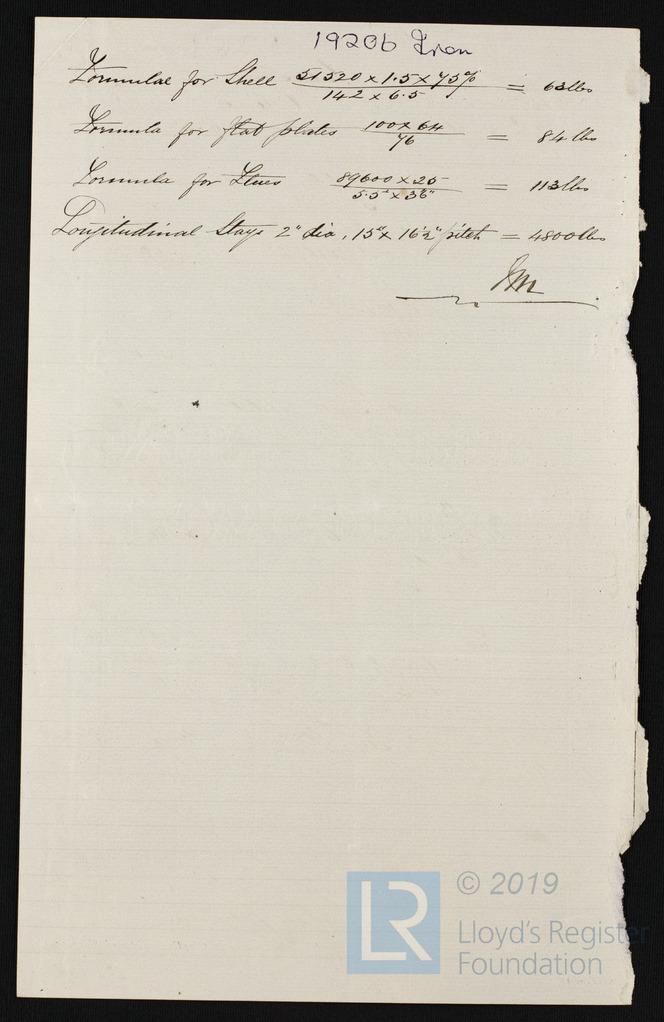 19206 Iron
Formulae for Shell 51520 x 1.5 x 75% / 142 x 6.5 = 63 lbs
Formula for flat plates 100 x 64 / 76 = 84 lbs
Formula for Flues 89600 x 25 / 5.5" x 36" = 113 lbs
Longitudinal Stays 2" dia, 15" x 16½" pitch = 4800 lbs
© 2019
LR
Lloyd's Register
Foundation